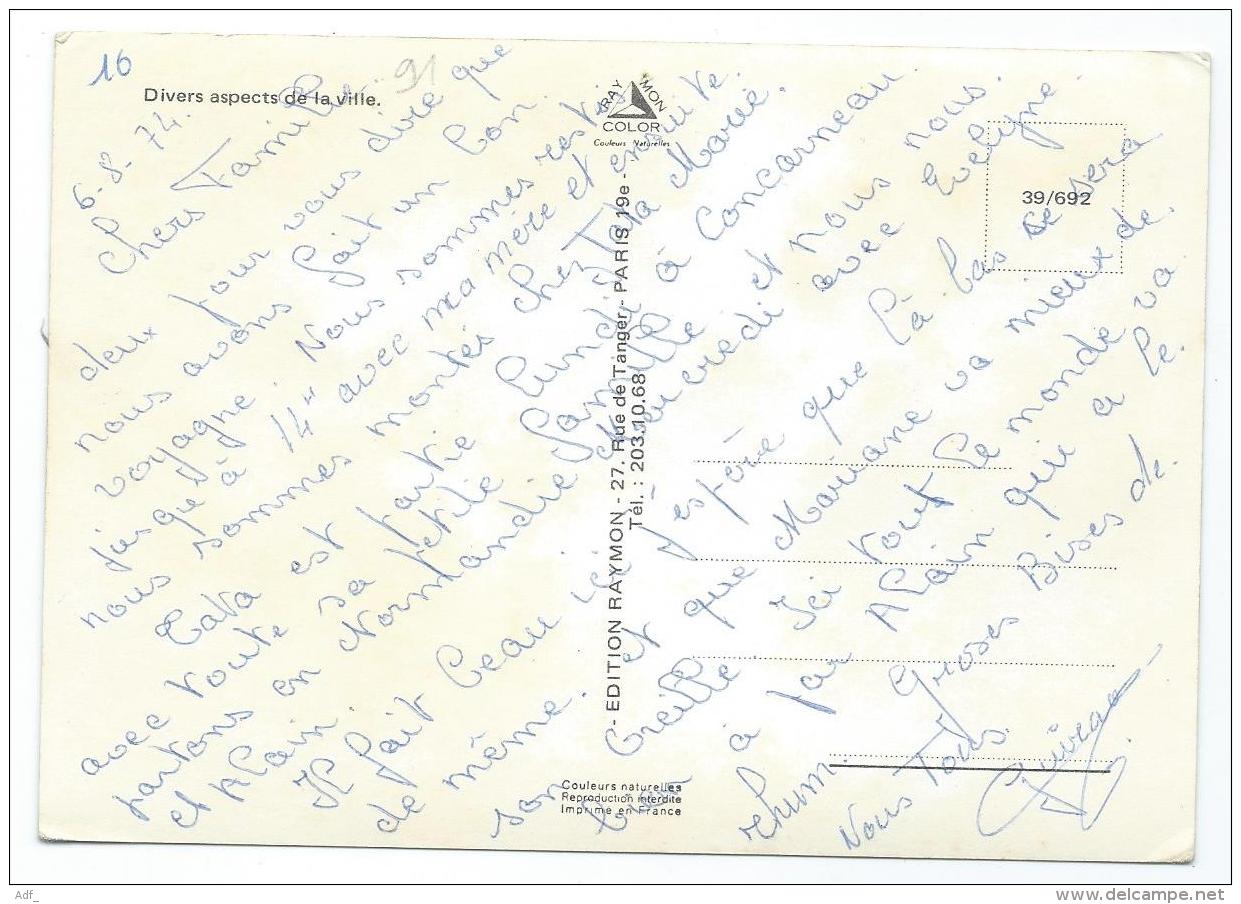 16
91
Divers aspects de la ville.
RAYMON
COLOR
Couleurs Naturelles
39/692
6-8-74.
Chers Famille
deux jour vous dire que
nous avons fait un bon
voyage. Nous sommes restés
jusqu'à 14H avec ma mère et ensuite
nous sommes montés chez Tata Marie.
Tata est partie Lundi à Concarneau
avec toute sa petite famille
partons en Normandie Mercredi et nous nous
et Alain. avec Evelyne
Il fait beau ici j'espère que là bas se sera
de même. et que Mariane va mieux de
son Oreille. Ici tout le monde va
bien à par Alain qui a le
rhum. Groses Bises de
Nous Tous.
- EDITION RAYMON - 27, Rue de Tanger - PARIS 19e -
Tél. : 203.10.68
Couleurs naturelles
Reproduction interdite
Imprimé en France
Adf_
www.delcampe.net